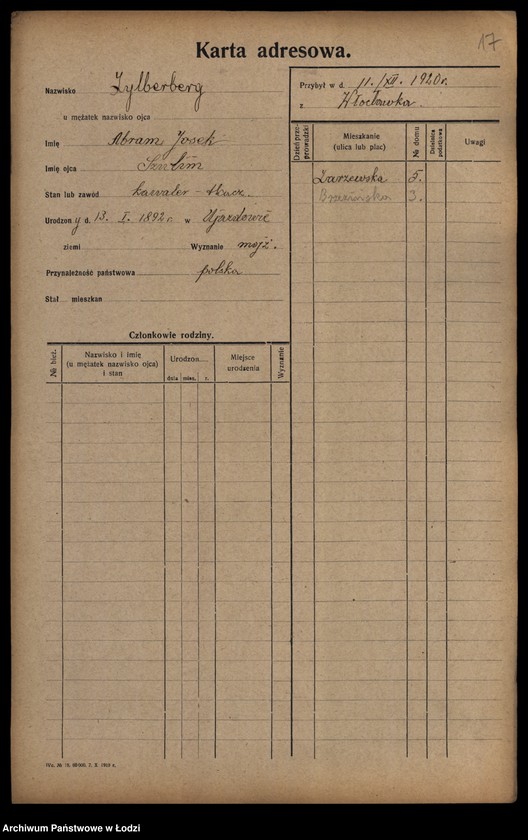 17
Karta adresowa.
Nazwisko Zylberberg
u mężatek nazwisko ojca
Imię Abram Josek
Imię ojca Szulim
Stan lub zawód kawaler - tkacz.
Urodzony d. 13. I. 1892 r. w Ujazdowie
ziemi Wyznanie mojż.
Przynależność państwowa polska
Stał mieszkan
Przybył w d. 11./XII. 1920 r.
z Włocławka.
Dzień prze-prowadzki
Mieszkanie (ulica lub plac)
№ domu
Dzielnica podatkowa
Uwagi
Zarzewska 5.
Brzezińska 3.
Członkowie rodziny.
№ bież.
Nazwisko i imię
(u mężatek nazwisko ojca)
i stan
Urodzon....
dnia mies. r.
Miejsce
urodzenia
Wyznanie
Archiwum Państwowe w Łodzi